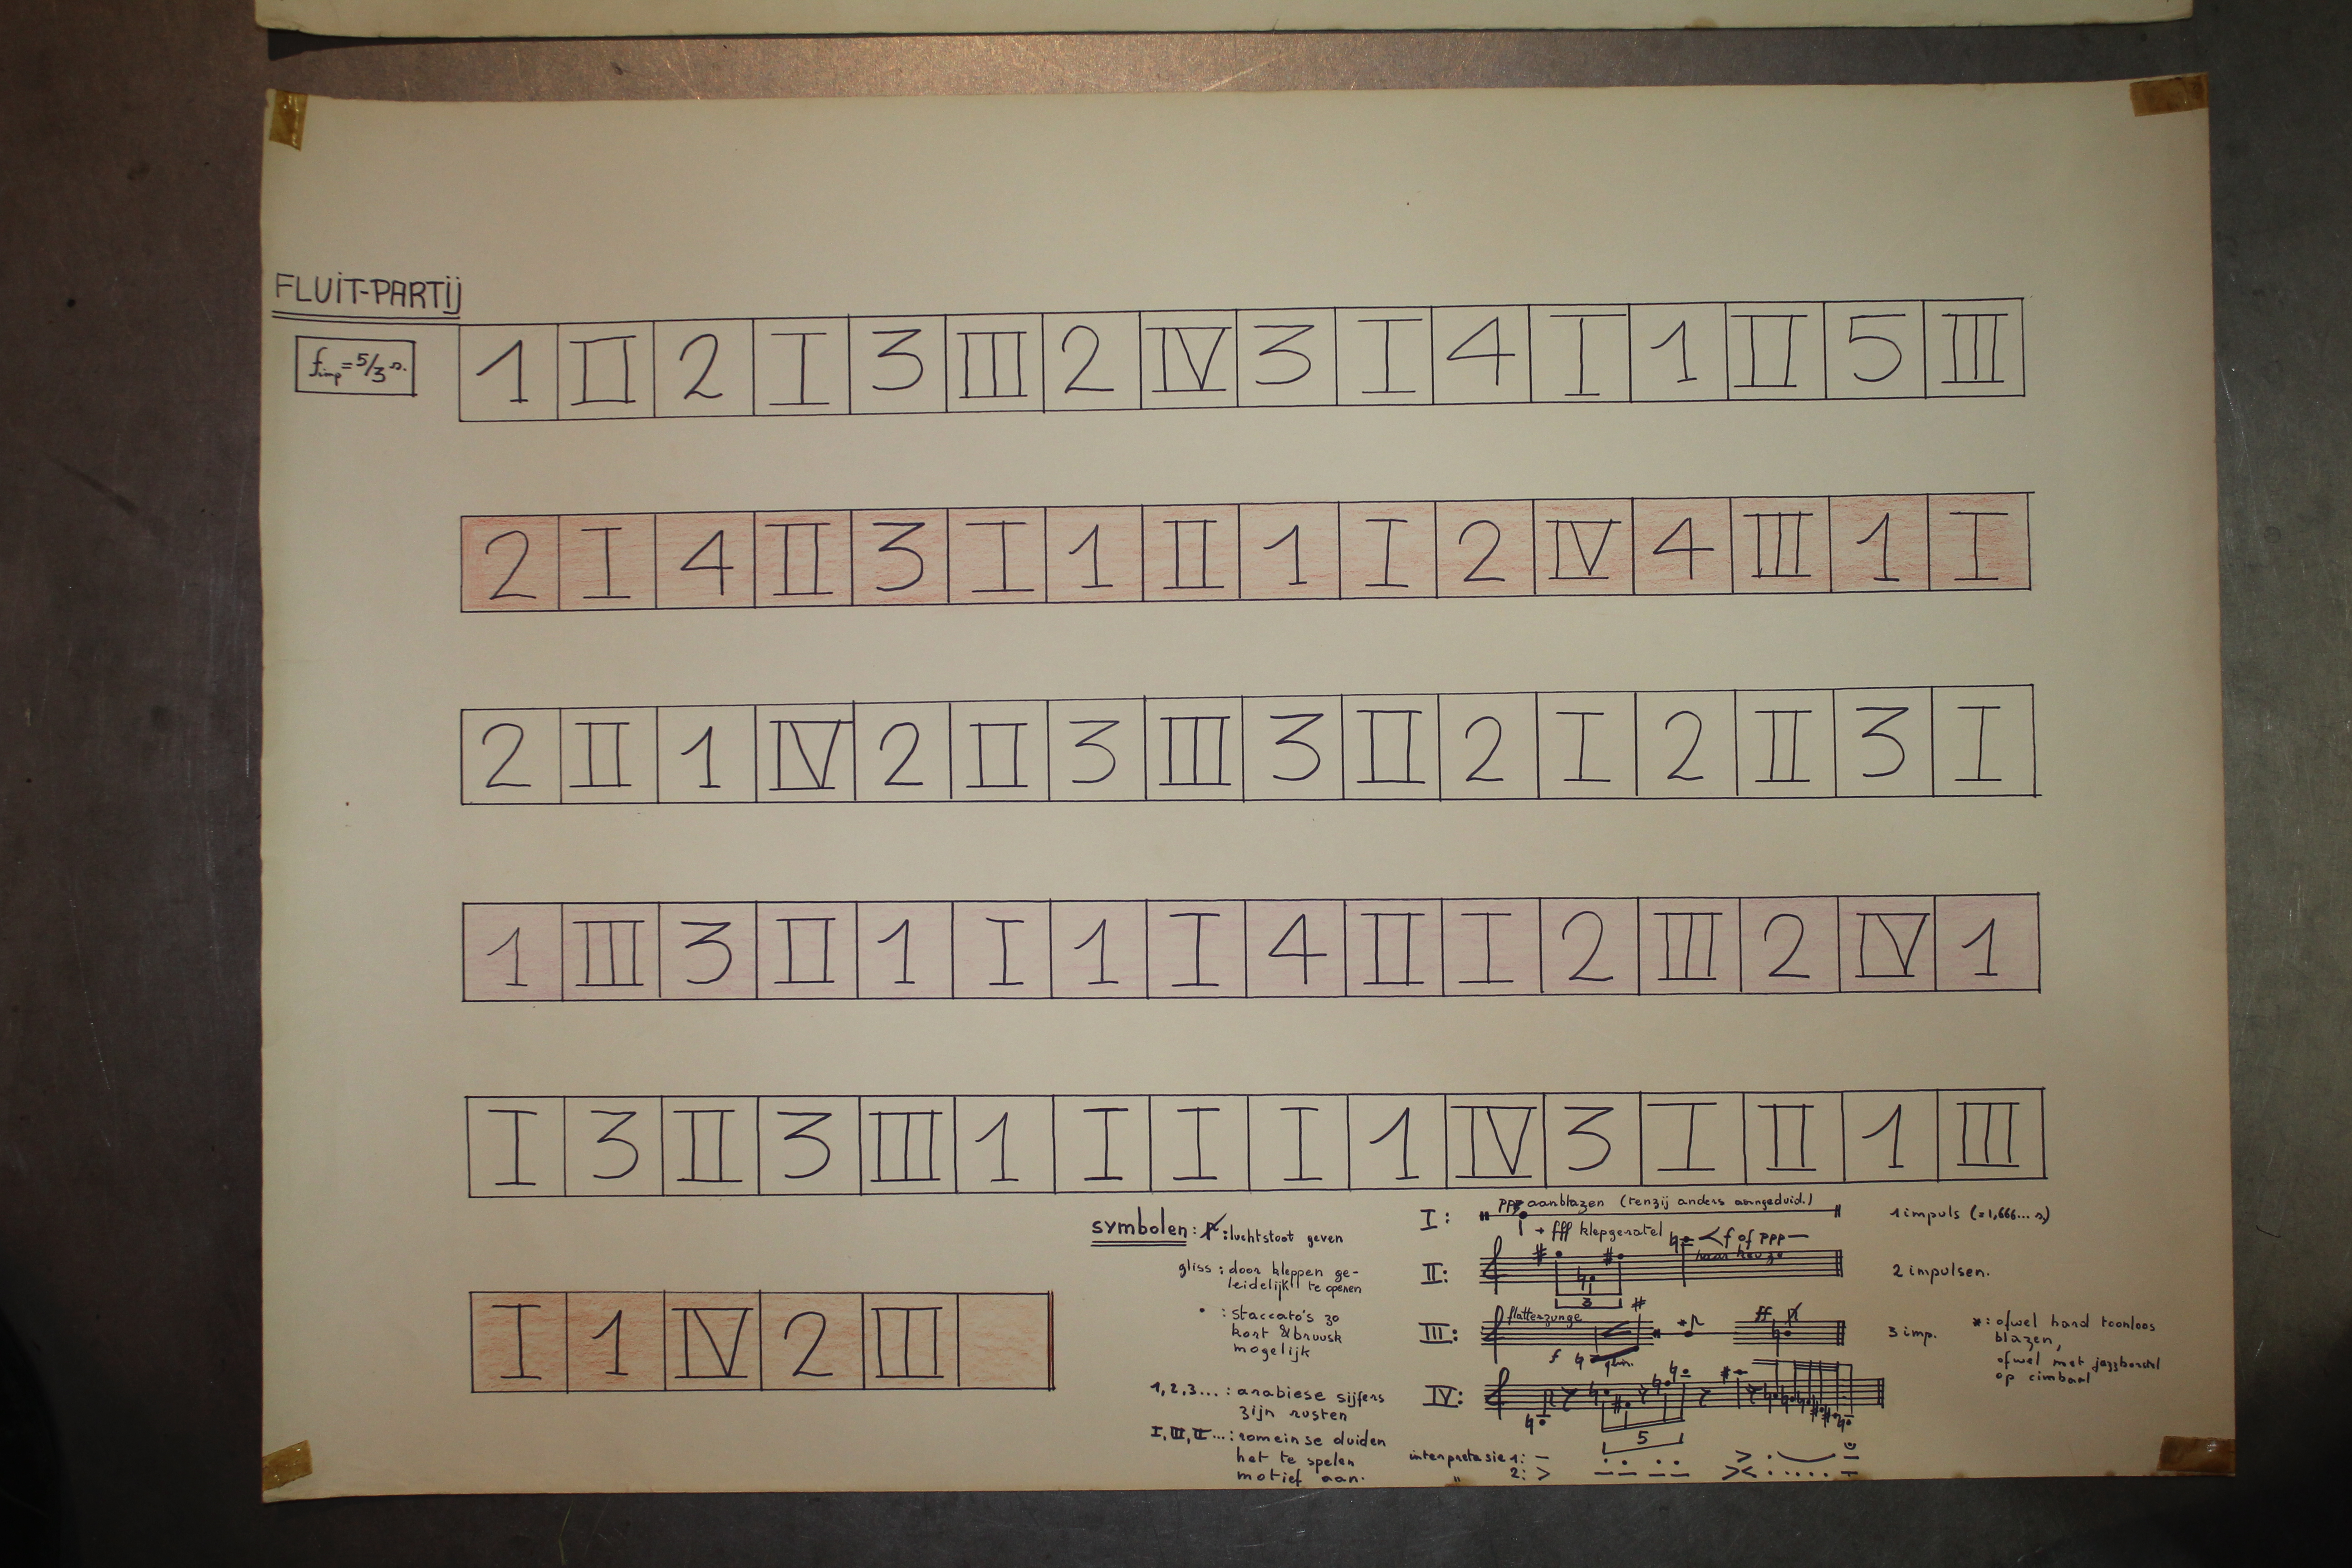 FLUIT-PARTIJ
fimp = 5/3 s.
1 II 2 I 3 III 2 IV 3 I 4 I 1 II 5 III
2 I 4 II 3 I 1 II 1 I 2 IV 4 III 1 I
2 II 1 IV 2 II 3 III 3 II 2 I 2 II 3 I
1 III 3 II 1 I 1 I 4 II I 2 III 2 IV 1
I 3 II 3 III 1 I I I 1 IV 3 I II 1 III
I 1 IV 2 III
symbolen: : luchtstoot geven
gliss : door kleppen ge-
leidelijk te openen
• : staccato's zo
kort & bruusk
mogelijk
1, 2, 3 ... : arabiese sijfers
zijn rusten
I, III, II ... : romeinse duiden
het te spelen
motief aan.
I: ppp aanblazen (tenzij anders aangeduid.) 1 impuls (=1,666... s)
+ fff klepgeratel
II: 3 < f of ppp — naar keuze 2 impulsen.
III: flatterzunge f gliss. * ff 3 imp.
*: ofwel hard toonloos
blazen,
ofwel met jazzborstel
op cimbaal
IV: 5
interpretasie 1: —
" 2: >